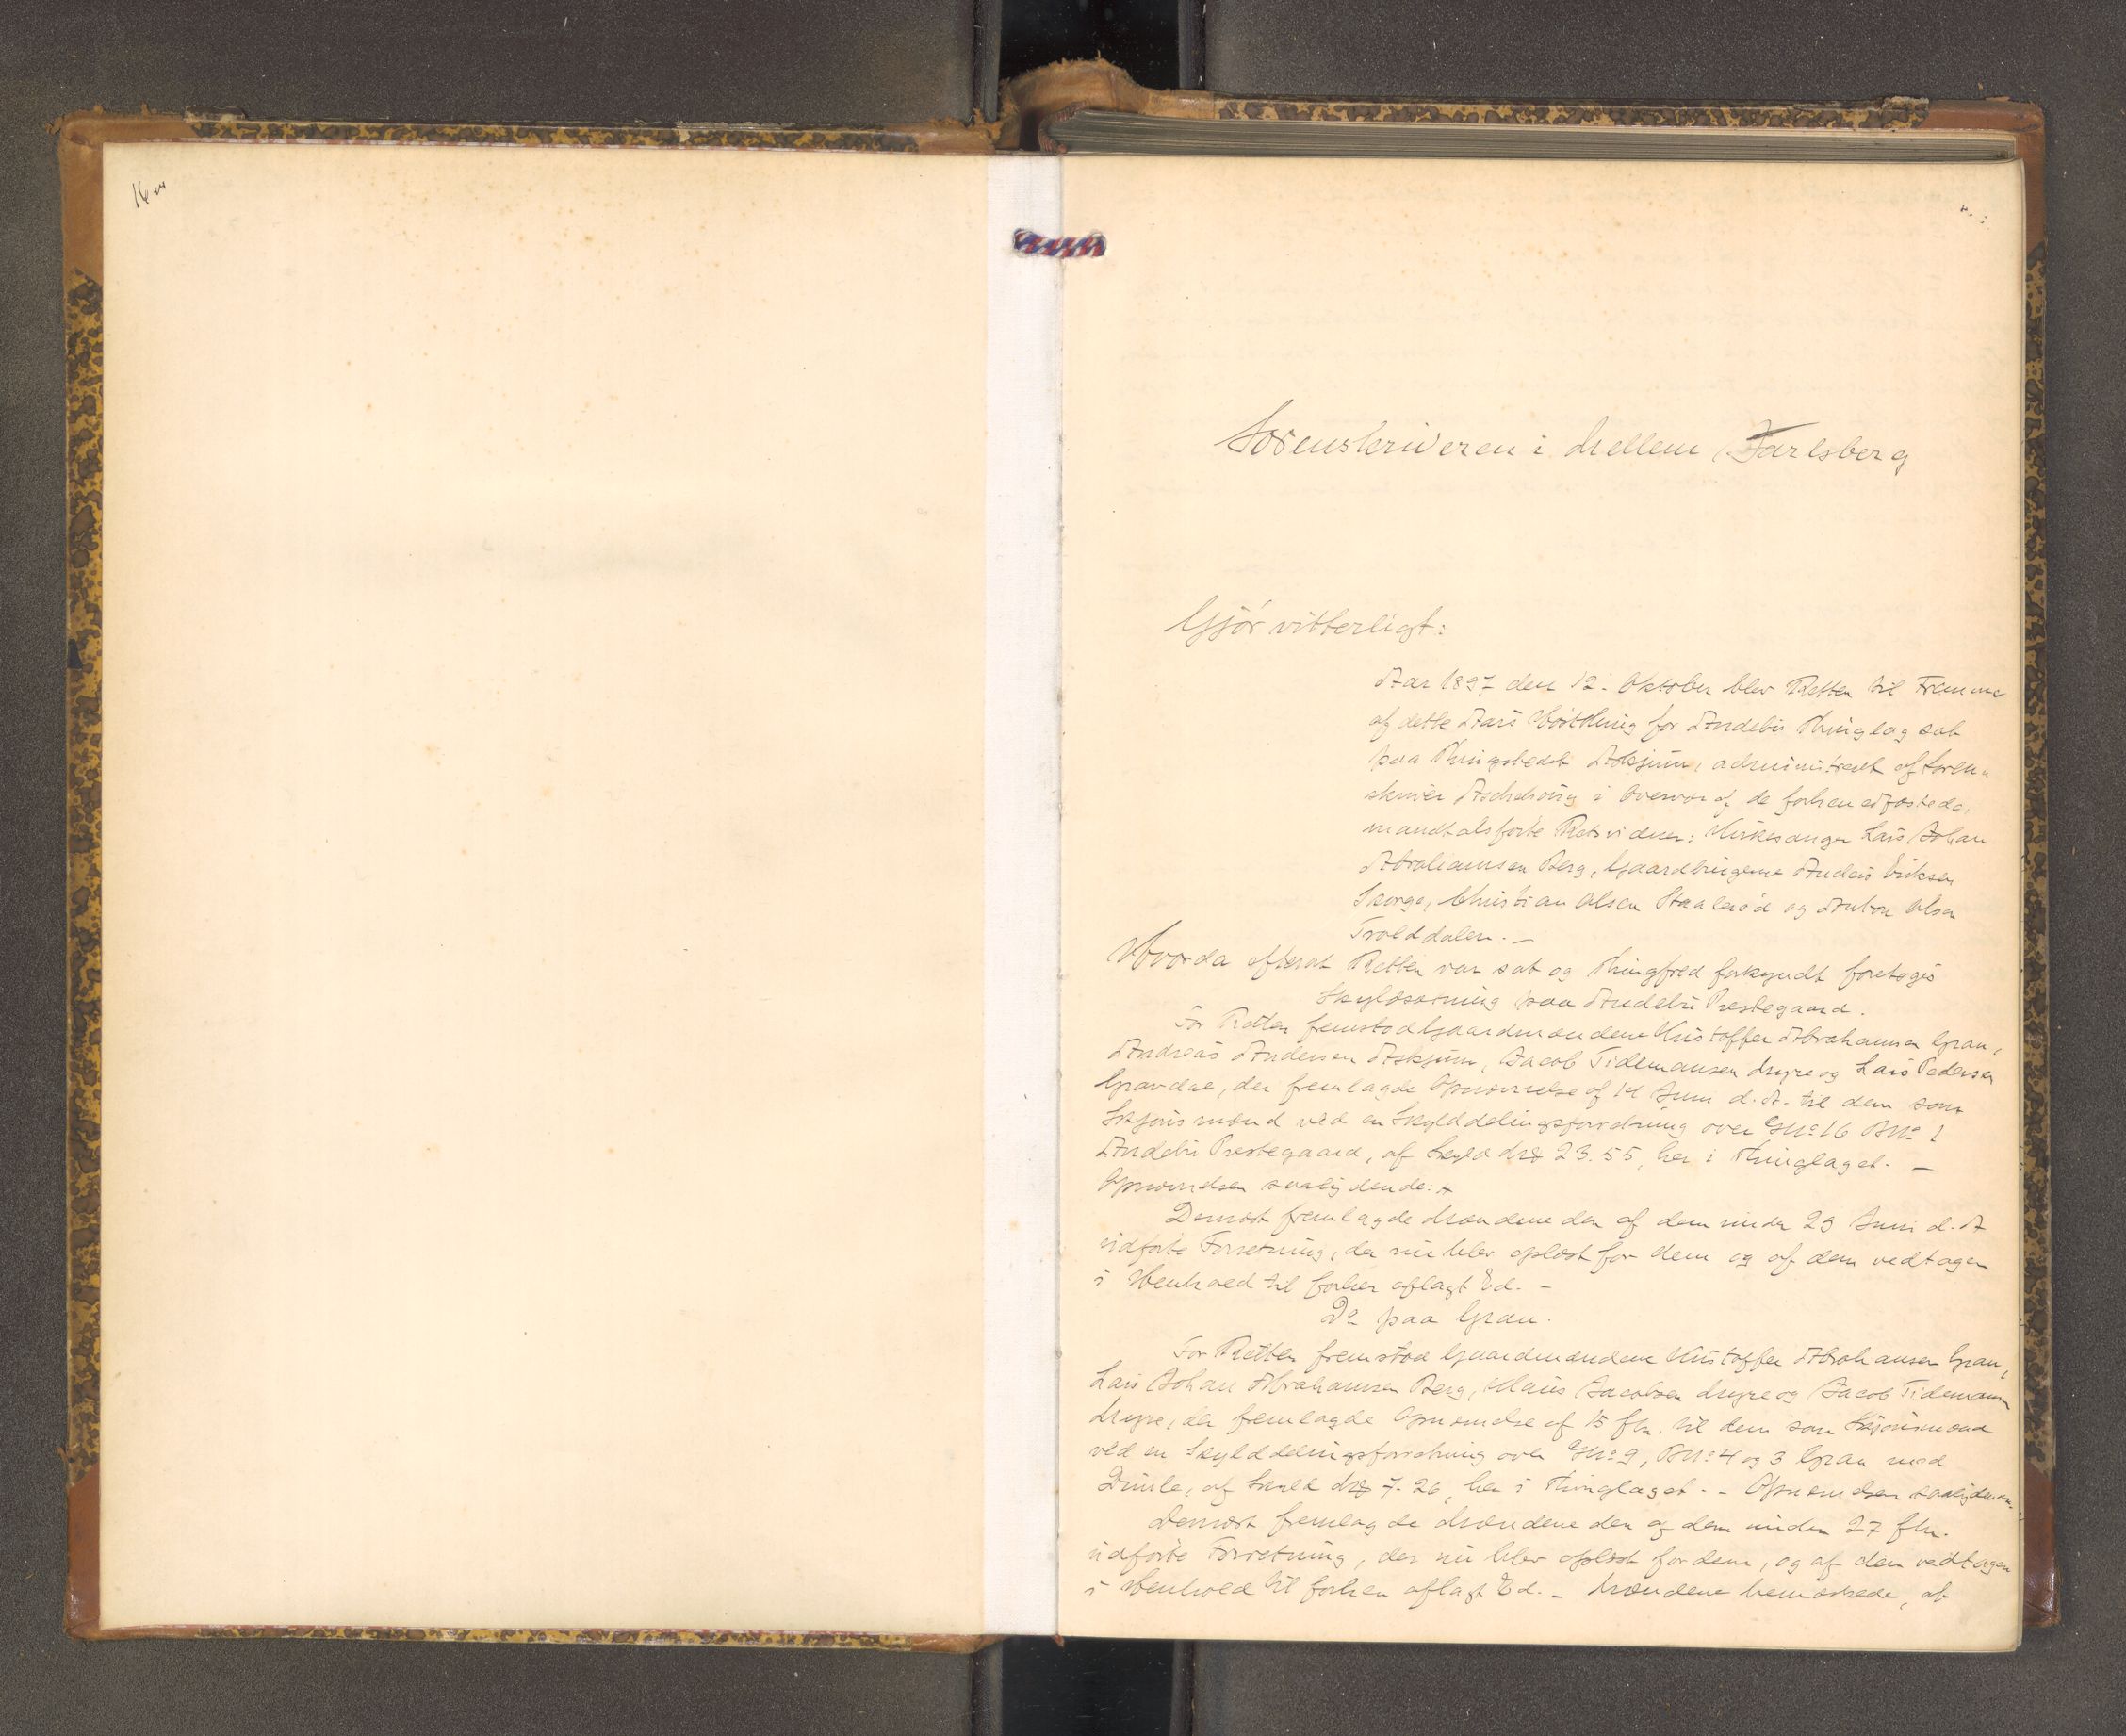 Sorenskriveren i Mellem Jarlsberg
Gjør vitterligt:
Aar 1897 den 12. Oktober blev Retten til Fremme
af dette Aars Høstthing for Andebu Thinglag sat
paa Thingstedet Askjum, administreret af Soren-
skriver Aschehoug i Overvær af de forhen edfæstede,
mandtalsførte Retsvidner: Kirkesanger Lars Johan
Abrahamsen Berg, Gaardbrugerne Anders Eriksen
Skorge, Christian Olsen Staalerød og Anton Olsen
Trolddalen. –
Hvorda efterat Retten var sat og Thingfred forkyndt foretoges
Skyldsætning paa Andebu Prestegaard.
For Retten fremstod Gaardmændene Kristoffer Abrahamsen Gran,
Andreas Andersen Askjum, Jacob Tidemansen Myre og Lars Pedersen
Gravdal, der fremlagde Opnævnelse af 14 Juni d. A. til dem som
Skjønsmænd ved en Skylddelingsforretning over GNo 16 BNo 1
Andebu Prestegaard, af Skyld Mk 23.55, her i Thinglaget. –
Opnævnelsen saalydende: A
Dernæst fremlagde Mændene den af dem under 29 Juni d. A
udførte Forretning, der nu blev oplæst for dem og af dem vedtagen
i Henhold til forhen aflagt Ed. –
Do paa Gran.
For Retten fremstod Gaardmændene Kristoffer Abrahamsen Gran,
Lars Johan Abrahamsen Berg, Klaus Jacobsen Myre og Jacob Tidemansen
Myre, der fremlagde Opnævnelse af 15 f.m. til dem som Skjønsmænd
ved en Skylddelingsforretning over GNo 9, BNo 4 og 3 Gran med
af Skyld Mk 7.26, her i Thinglaget. – Opnævnelsen saalydende
Dernæst fremlagde Mændene den af dem under 27 f.m.
udførte Forretning, der nu blev oplæst for dem, og af dem vedtagen
i Henhold til forhen aflagt Ed. – Mændene bemærkede, at